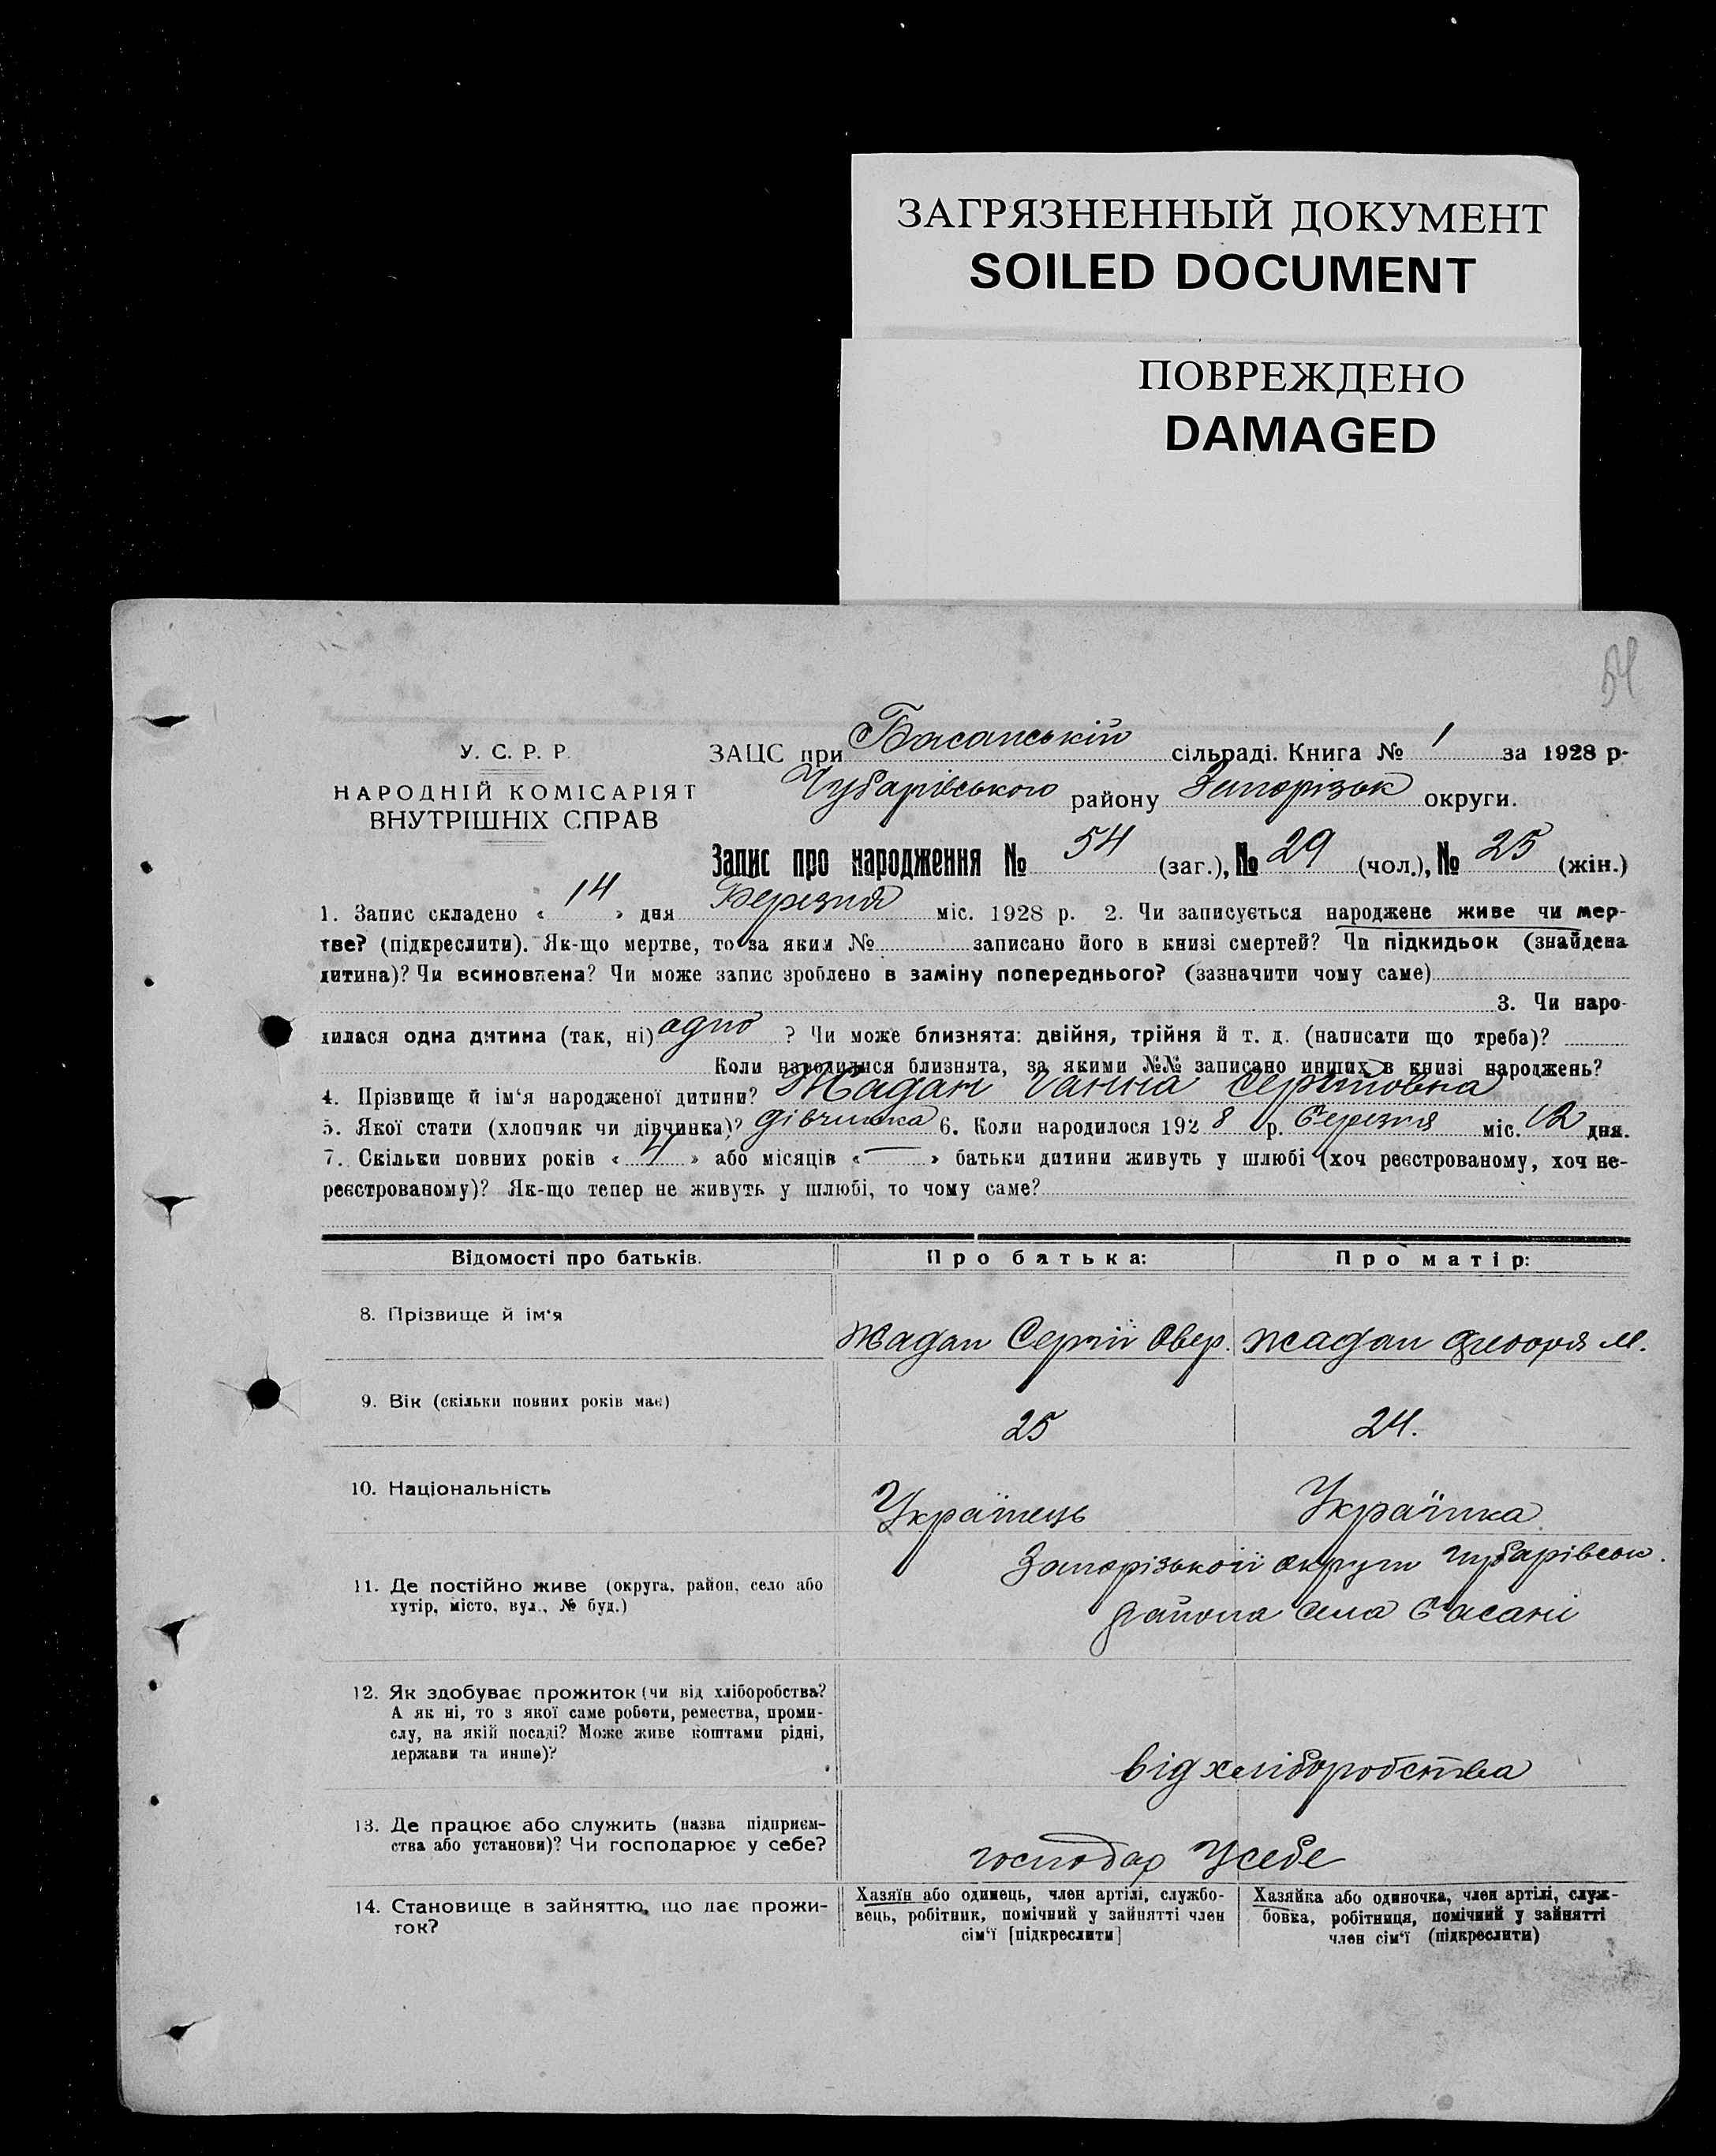 ЗАГРЯЗНЕННЫЙ ДОКУМЕНТ
SOILED DOCUMENT
ПОВРЕЖДЕНО
DAMAGED
54
У. С. Р. Р.
НАРОДНІЙ КОМІСАРІЯТ
ВНУТРІШНІХ СПРАВ
ЗАЦС при Басанській сільраді. Книга № 1 за 1928 р.
Чубарівського району Запорізьк округи.
Запис про народження № 54 (заг.), № 29 (чол.), № 25 (жін.)
1. Запис складено « 14 » дня Березня міс. 1928 р. 2. Чи записується народжене живе чи мер-
тве? (підкреслити). Як-що мертве, то за яким № записано його в книзі смертей? Чи підкидьок (знайдена
дитина)? Чи всиновлена? Чи може запис зроблено в заміну попереднього? (зазначити чому саме)
3. Чи наро-
дилася одна дитина (так, ні) одно ? Чи може близнята: двійня, трійня й т. д. (написати що треба)?
Коли народилися близнята, за якими №№ записано инших в книзі народжень?
4. Прізвище й ім'я народженої дитини? Жадан Ганна Сергіївна
5. Якої стати (хлопчяк чи дівчинка)? дівчинка 6. Коли народилося 1928 р. Березня міс. 12 дня.
7. Скільки повних років « 4 » або місяців « — » батьки дитини живуть у шлюбі (хоч реєстрованому, хоч не-
реєстрованому)? Як-що тепер не живуть у шлюбі, то чому саме?
Відомості про батьків. Про батька: Про матір:
8. Прізвище й ім'я Жадан Сергій Овер. Жадан М.
9. Вік (скільки повних років має) 25 24.
10. Національність Українець Українка
11. Де постійно живе (округа, район, село або
хутір, місто, вул., № буд.)
Запорізькоїї округи Чубарівськ.
района села Басані
12. Як здобуває прожиток (чи від хліборобства?
А як ні, то з якої саме роботи, ремества, проми-
слу, на якій посаді? Може живе коштами рідні,
держави та инше)?
від хліборобства
13. Де працює або служить (назва підприєм-
ства або установи)? Чи господарює у себе?
господар У себе
14. Становище в зайняттю, що дає прожи-
ток?
Хазяїн або одинець, член артілі, службо-
вець, робітник, помічний у зайнятті член
сім'ї [підкреслити]
Хазяйка або одиночка, член артілі, служ-
бовка, робітниця, помічний у зайнятті
член сім'ї (підкреслити)